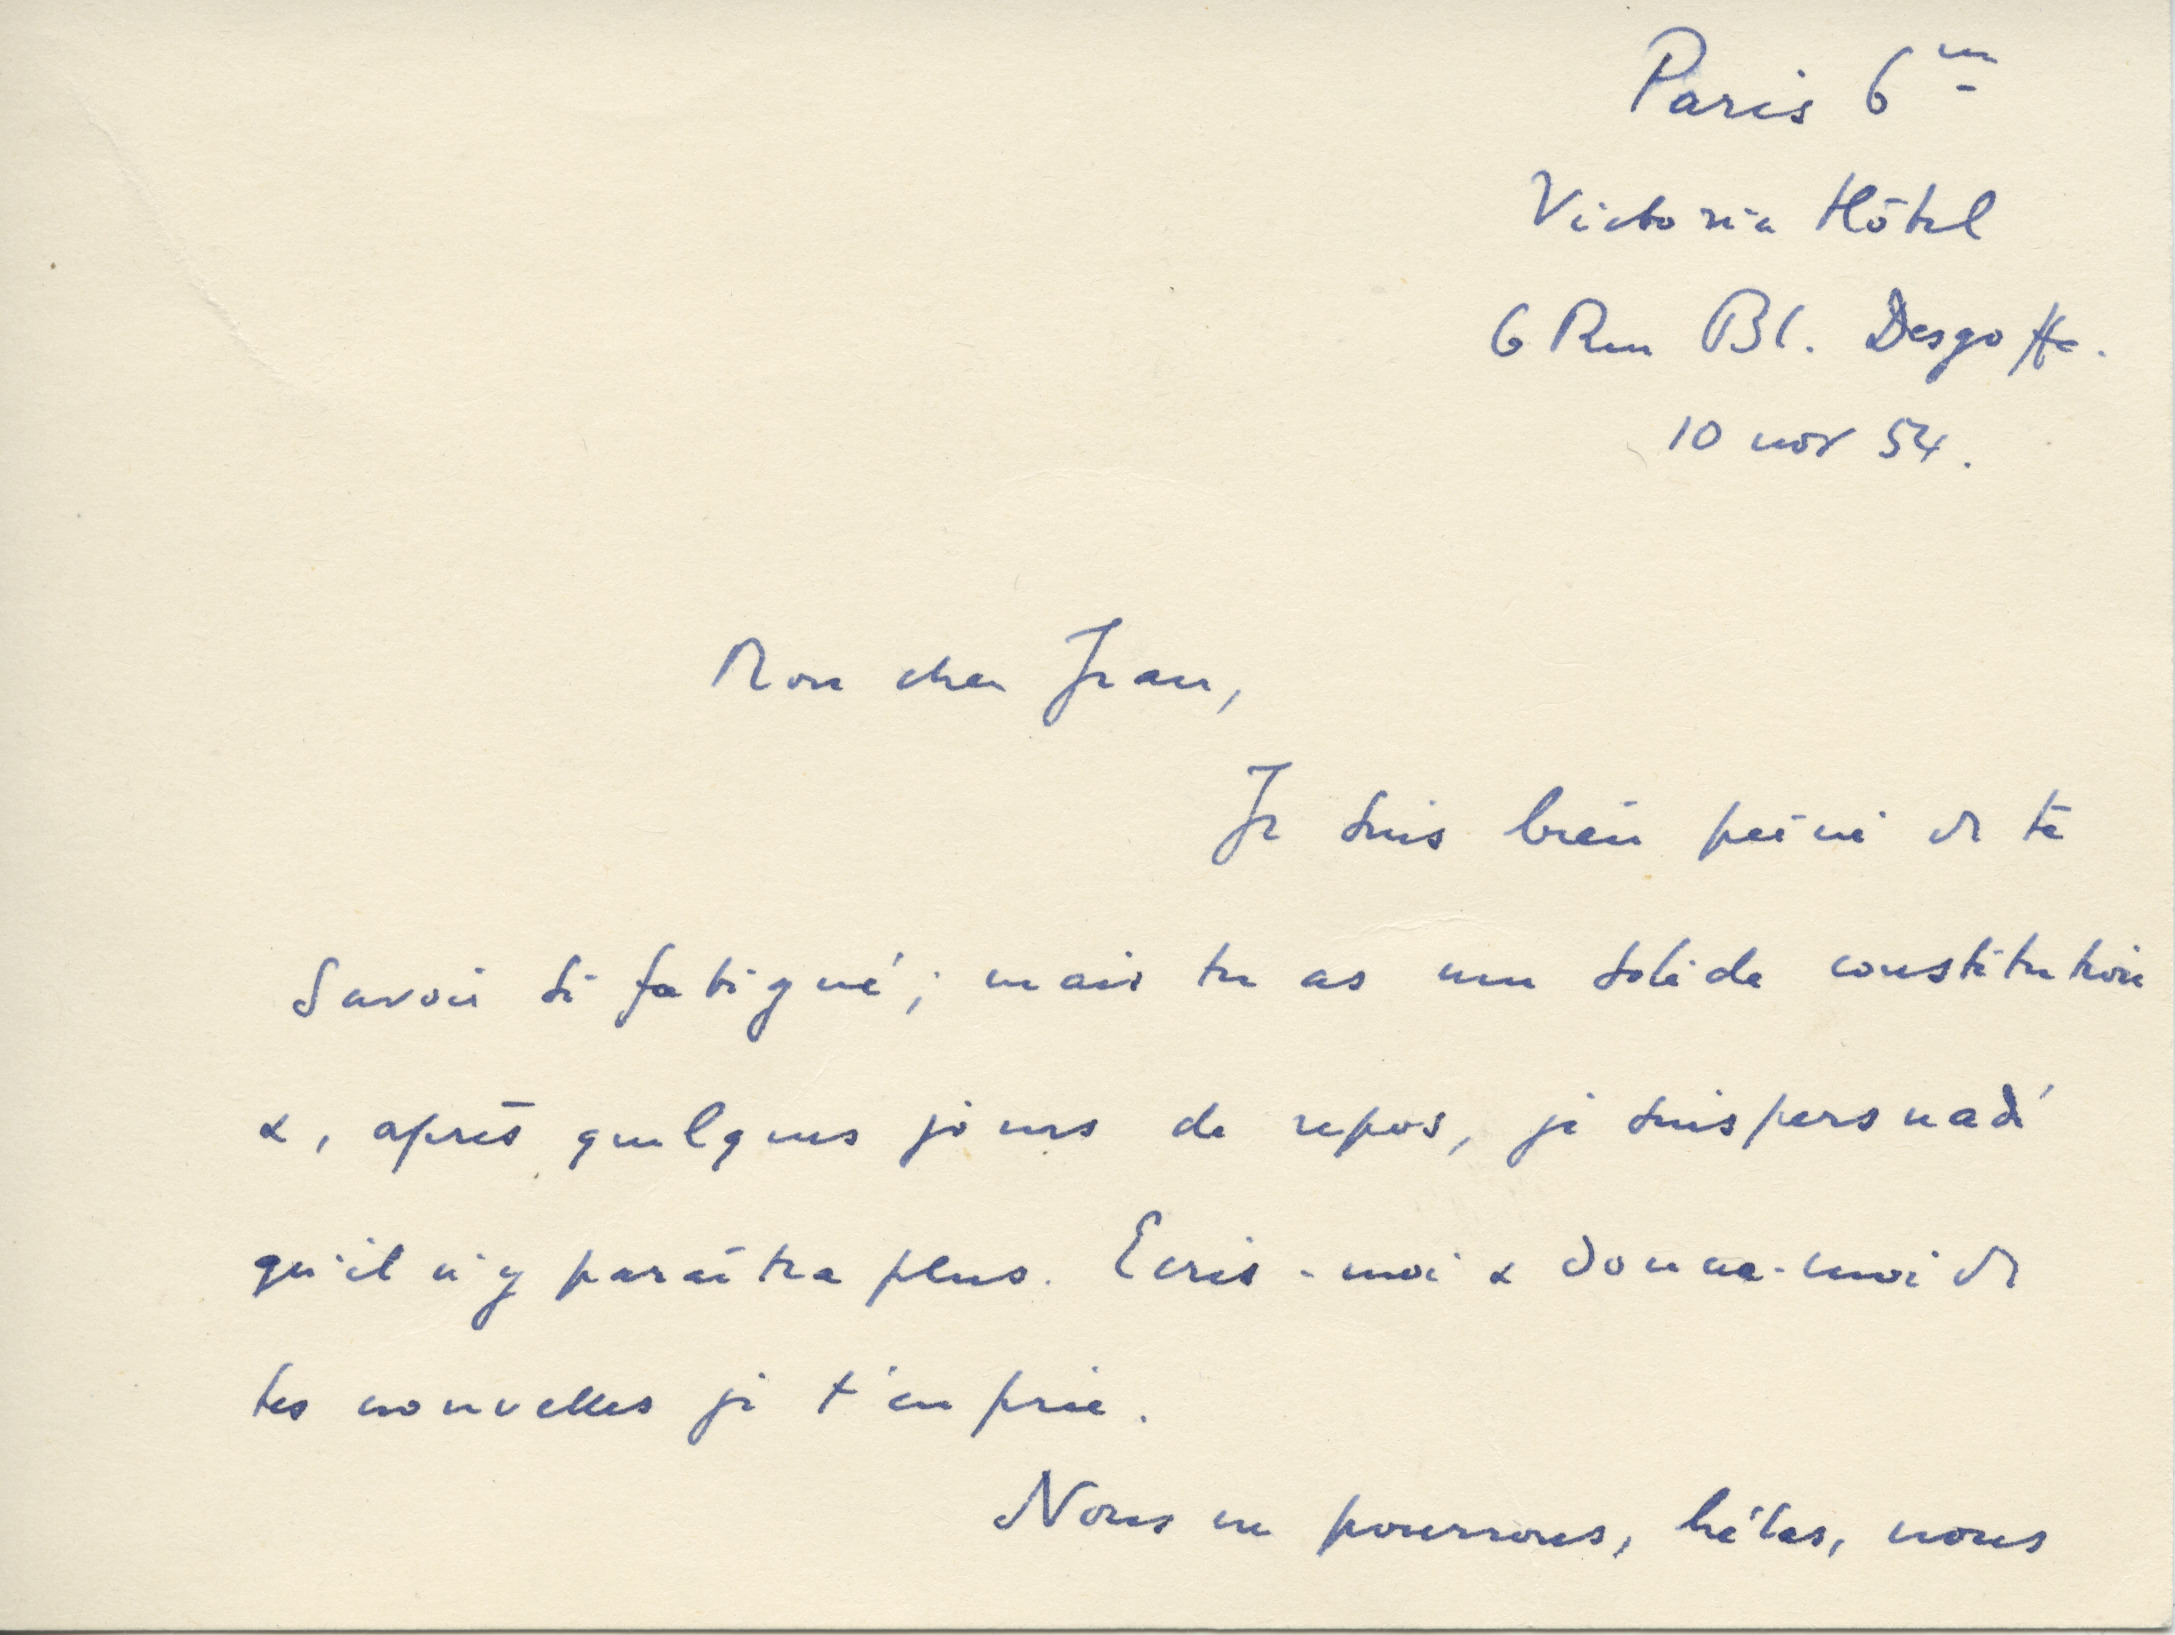 Paris 6me
Victoria Hôtel
6 Rue Bl. Desgoffe.
10 nov 54.
Mon cher Jean,
Je suis bien peiné de te
savoir si fatigué ; mais tu as une solide constitution
&, après quelques jours de repos, je suis persuadé
qu'il n'y paraîtra plus. Ecris-moi & donne-moi de
tes nouvelles je t'en prie.
Nous ne pourrons, hélas, nous